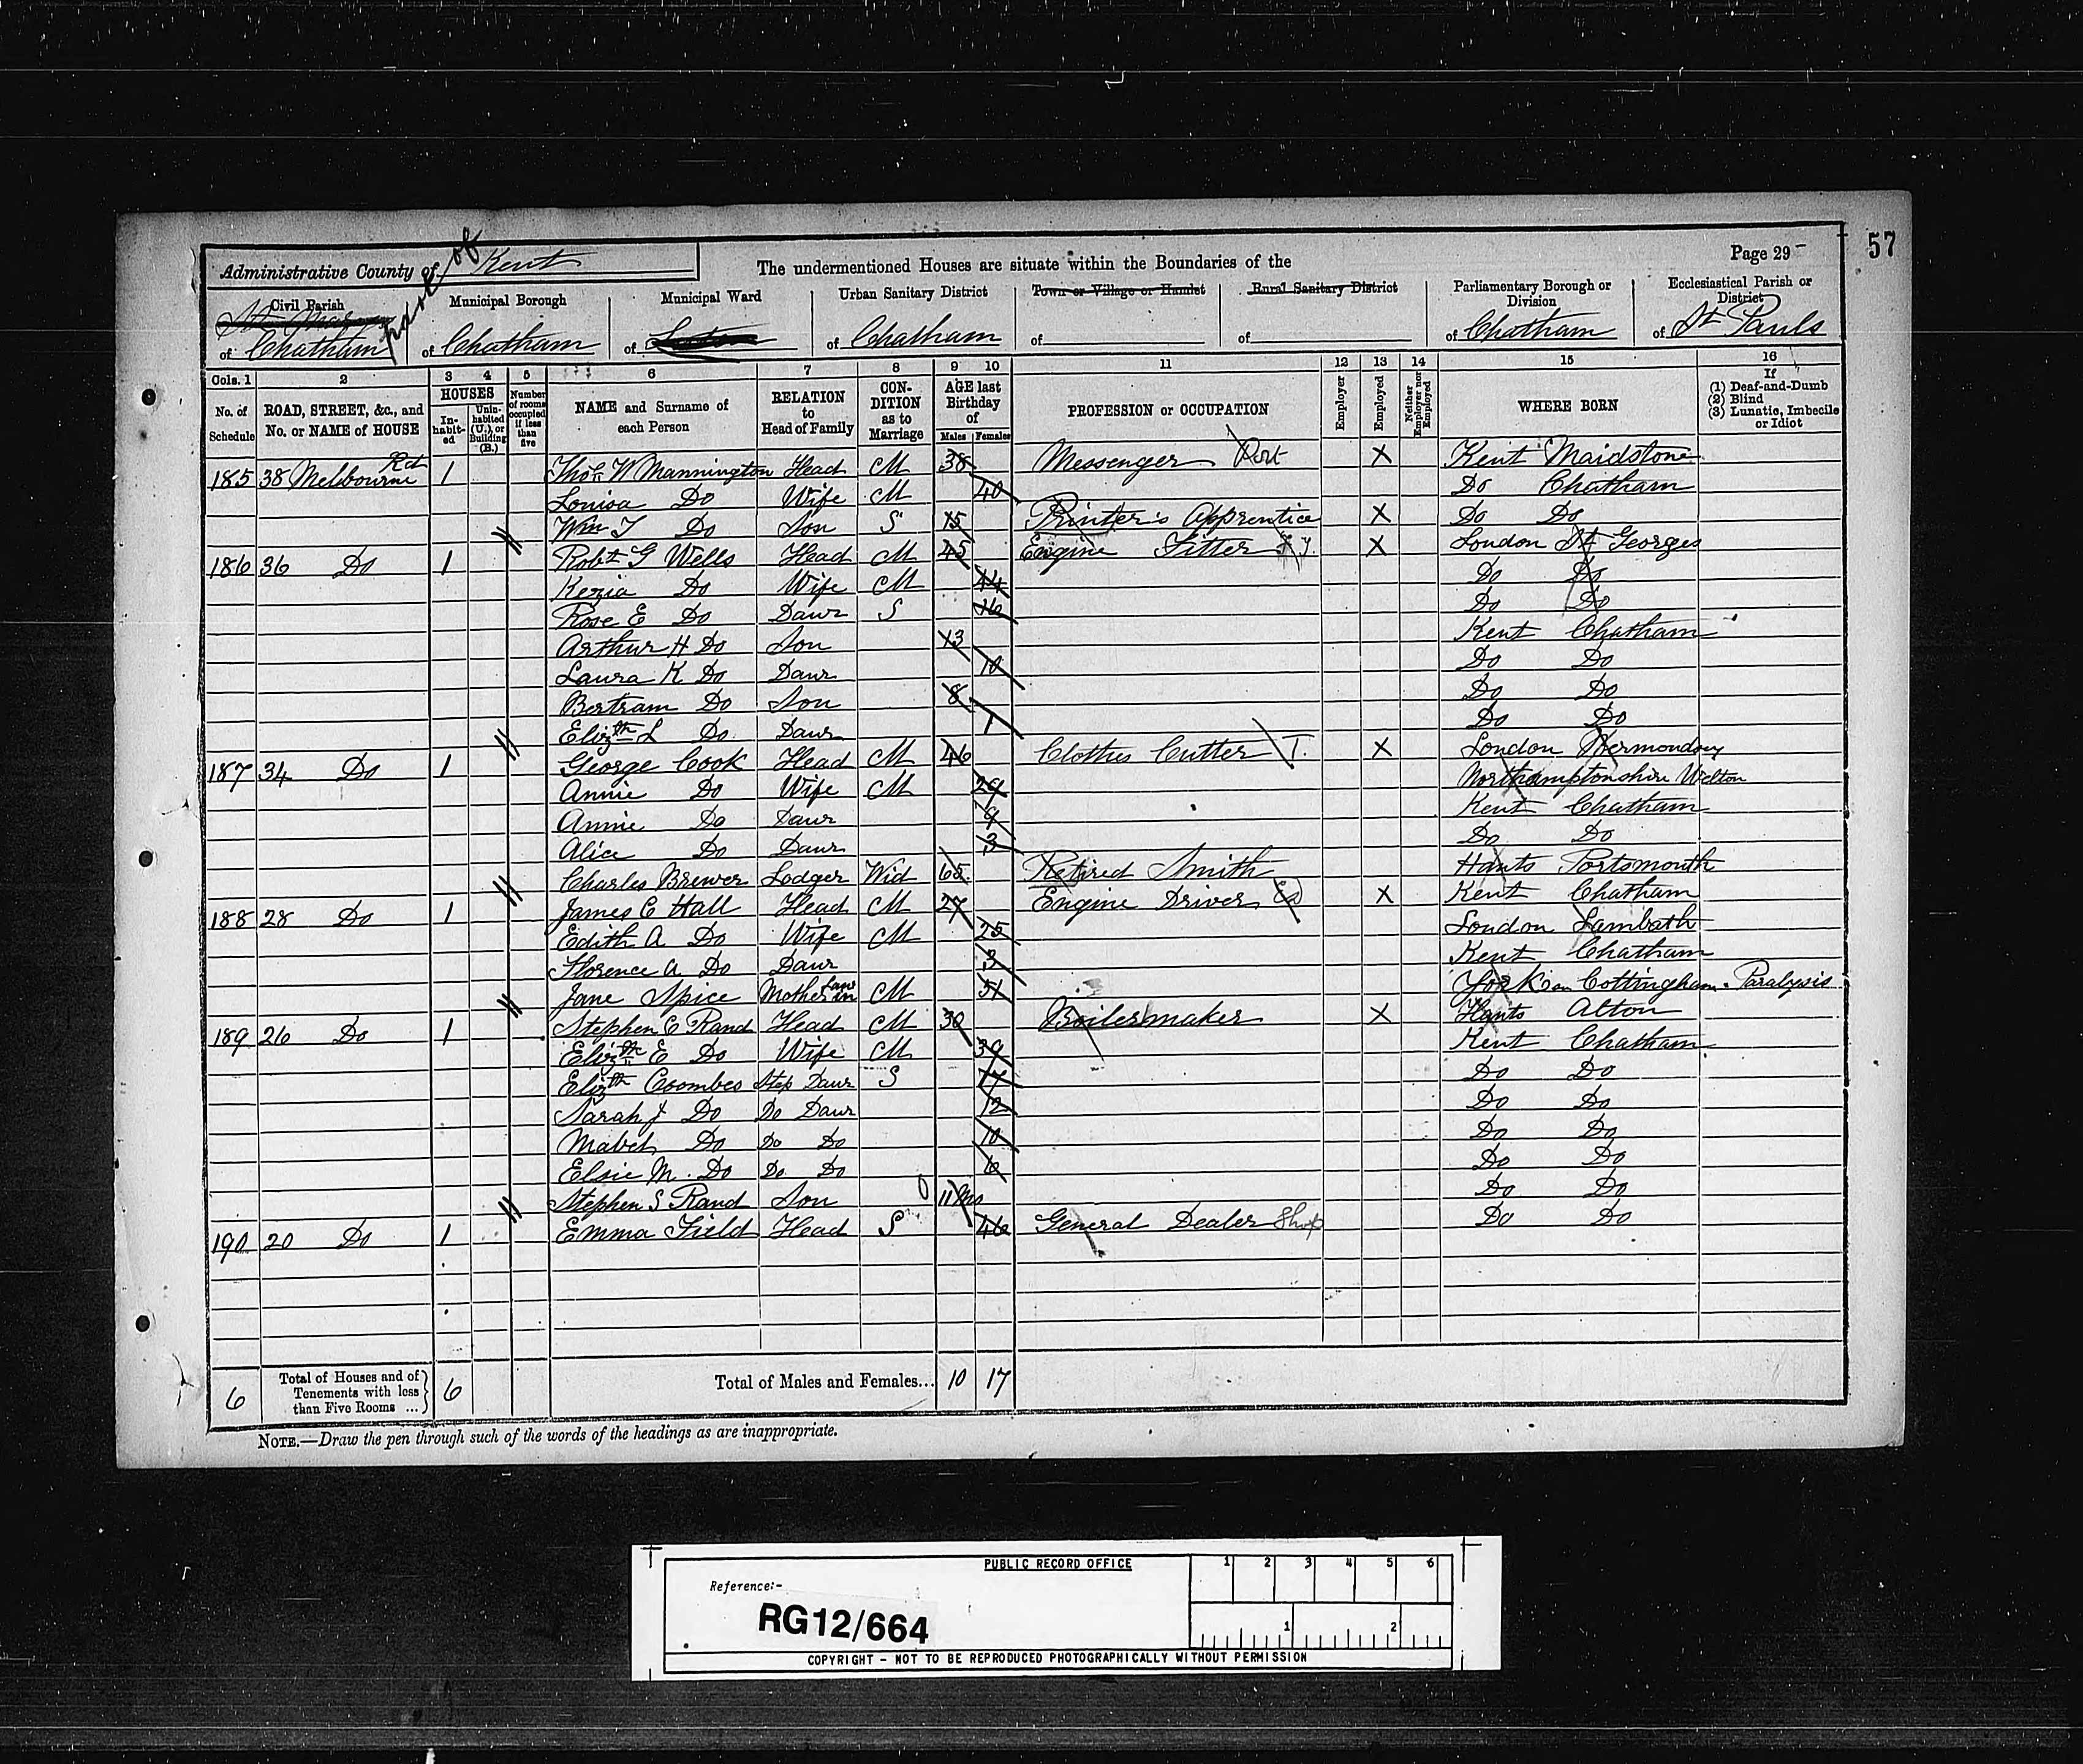 57
Page 29
Administrative County of Kent
The undermentioned Houses are situate within the Boundaries of the
Civil Parish
of Chatham part of
Municipal Borough
of Chatham
Municipal Ward
of
Urban Sanitary District
of Chatham
Town or Village or Hamlet
of
Rural Sanitary District
of
Parliamentary Borough or Division
of Chatham
Ecclesiastical Parish or District
of St Pauls
Cols. 1 2 3 4 5 6 7 8 9 10 11 12 13 14 15 16
No. of Schedule
ROAD, STREET, &c., and No. or NAME of HOUSE
HOUSES
In-habit-ed
Unin-habited (U.), or Building (B.)
Number of rooms occupied if less than five
NAME and Surname of each Person
RELATION to Head of Family
CON-DITION as to Marriage
AGE last Birthday of
Males Females
PROFESSION or OCCUPATION
Employer
Employed
Neither Employer nor Employed
WHERE BORN
If
(1) Deaf-and-Dumb
(2) Blind
(3) Lunatic, Imbecile or Idiot
185 38 Melbourne Rd 1 Thos W Mannington Head M 38 Messenger Port X Kent Maidstone
Louisa Do Wife M 40 Do Chatham
Wm T Do Son S 15 Printer's Apprentice X Do Do
186 36 Do 1 Robt G Wells Head M 45 Engine Fitter X London St Georges
Kezia Do Wife M 44 Do Do
Rose E Do Daur S 16 Do Do
Arthur H Do Son 13 Kent Chatham
Laura K Do Daur 10 Do Do
Bertram Do Son 8 Do Do
Elizth L Do Daur 1 Do Do
187 34 Do 1 George Cook Head M 46 Clothes Cutter T. X London Bermondsey
Annie Do Wife M 29 Northamptonshire Welton
Annie Do Daur 9 Kent Chatham
Alice Do Daur 3 Do Do
Charles Brewer Lodger Wid 65 Retired Smith Hants Portsmouth
188 28 Do 1 James C Hall Head M 27 Engine Driver X Kent Chatham
Edith A Do Wife M 25 London Lambeth
Florence A Do Daur 3 Kent Chatham
Jane Spice Mother in Law M 51 Cottingham Paralysis
189 26 Do 1 Stephen C Rand Head M 30 Boilermaker X Hants Alton
Elizth E Do Wife M 39 Kent Chatham
Elizth Coombes Step Daur S Do Do
Sarah J Do Do Daur 12 Do Do
Mabel Do Do Do 10 Do Do
Elsie M. Do Do Do 6 Do Do
Stephen S Rand Son 11 Mo Do Do
190 20 Do 1 Emma Field Head S 46 General Dealer Shop Do Do
6 Total of Houses and of Tenements with less than Five Rooms ... 6 Total of Males and Females... 10 17
NOTE.—Draw the pen through such of the words of the headings as are inappropriate.
PUBLIC RECORD OFFICE
1 2 3 4 5 6
Reference:-
RG12/664
1 2
COPYRIGHT - NOT TO BE REPRODUCED PHOTOGRAPHICALLY WITHOUT PERMISSION